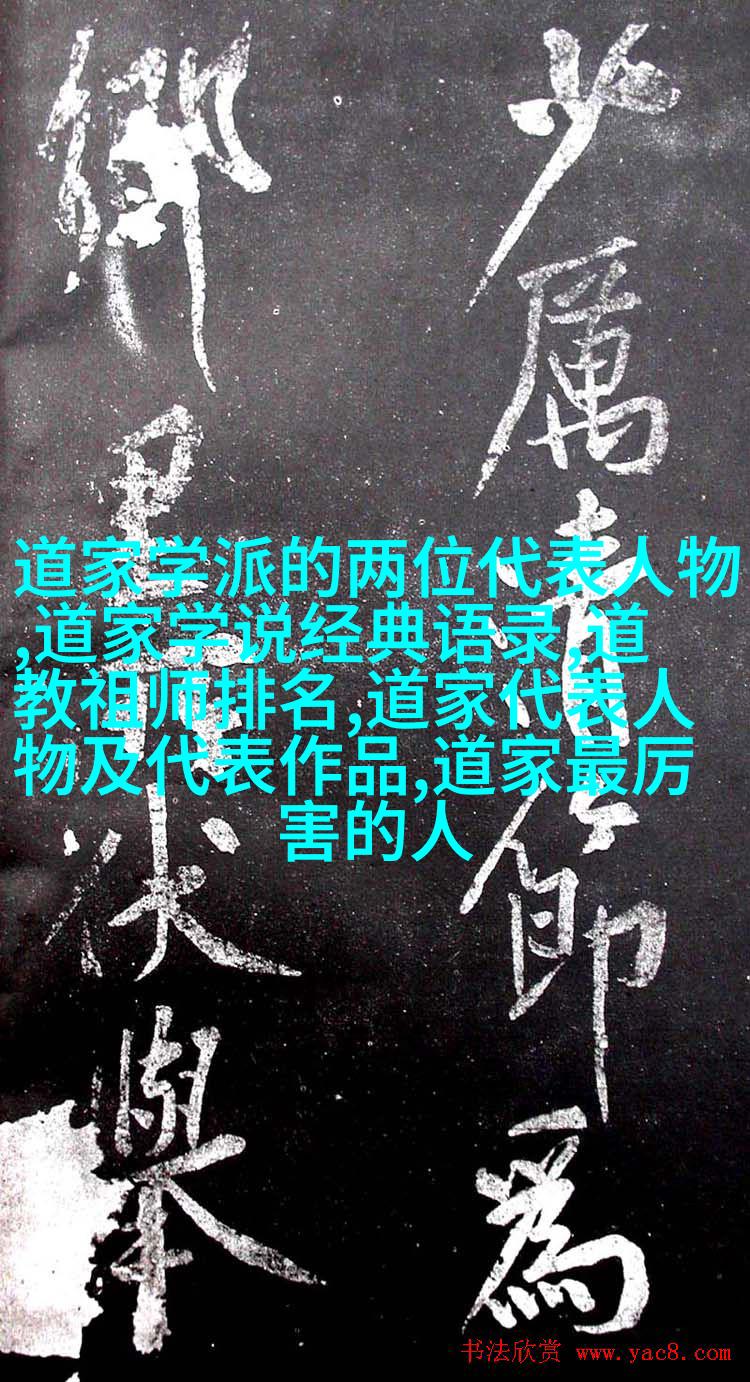 少厲清節為
鄉里伏舉
道家学派的两位代表人物
,道家学说经典语录,道
教祖师排名,道家代表人
物及代表作品,道家最厉
害的人
书法欣赏 www.yac8.com